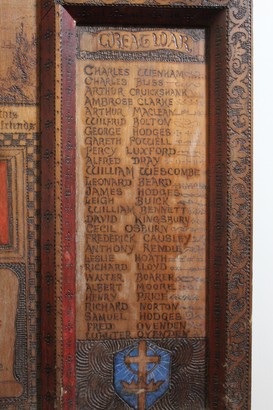 GREAT WAR
CHARLES WENHAM
CHARLES BUSS
ARTHUR CRUICKSHANK
AMBROSE CLARKE
ARTHUR MACLEAN
WILFRID BOLTON
GEORGE HODGES
GARETH POWELL
PERCY LUXFORD
ALFRED DRAY
WILLIAM WESCOMBE
LEONARD HEARD
JAMES HODGES
LEIGH BUICK
WILLIAM BENNETT
DAVID KINGSBURY
CECIL OSBURN
FREDERICK CAUSLEY
ANTHONY
LESLIE HOATH
RICHARD LLOYD
WALTER BOAREN
ALBERT MOORE
HENRY PRICE
RICHARD NORTON
SAMUEL HODGES
FRED OVENDEN